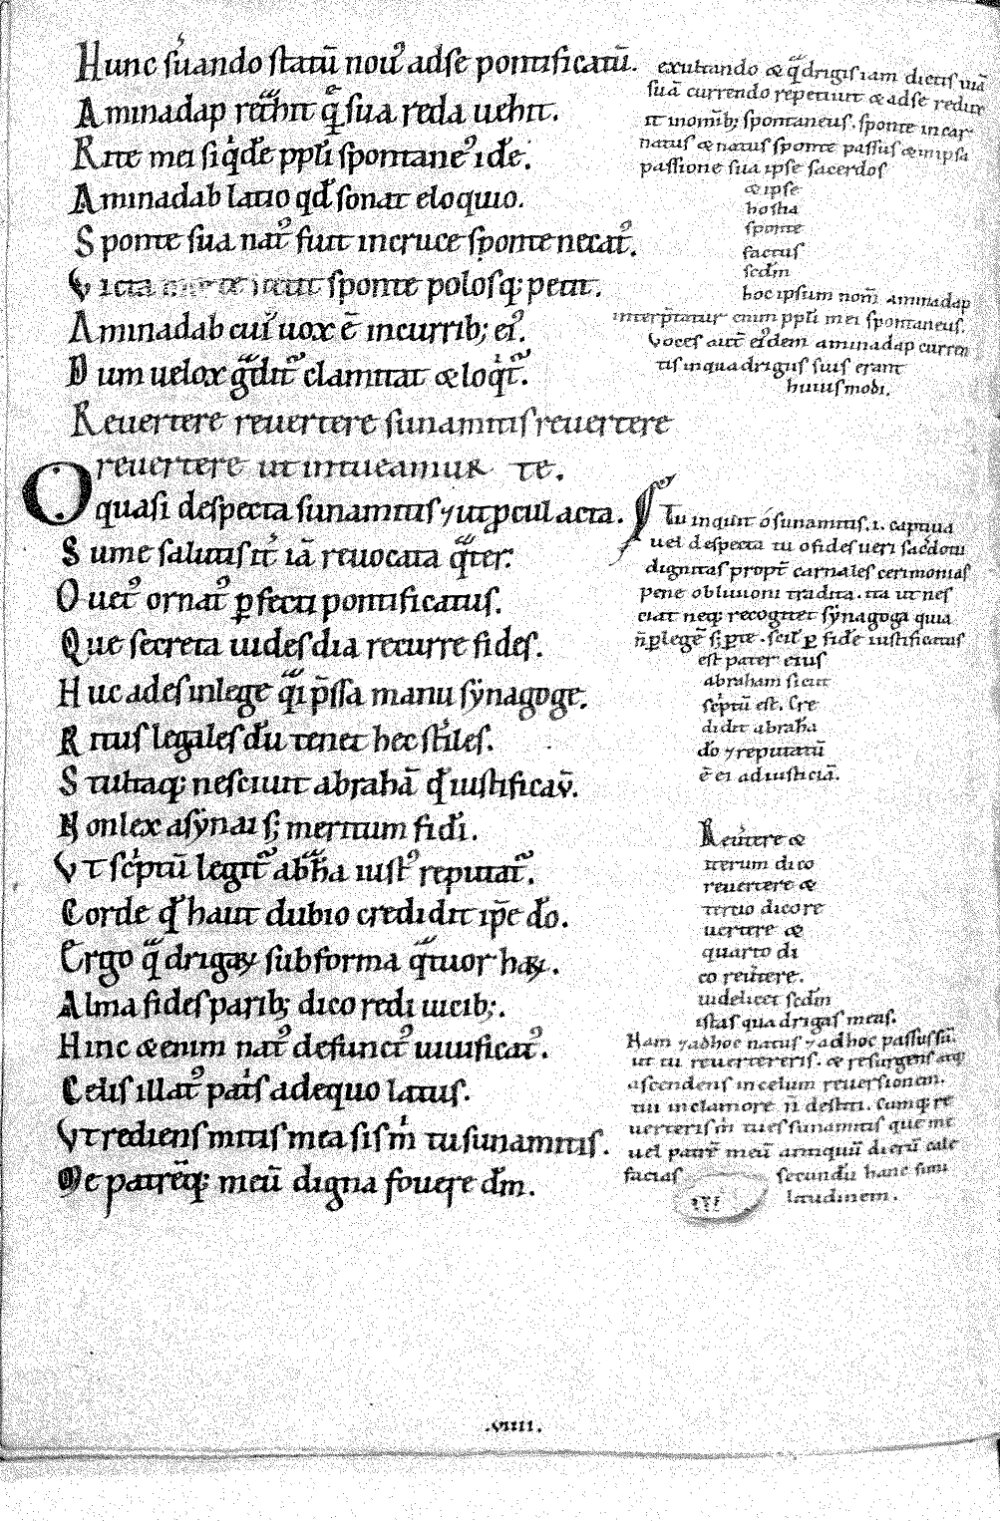 Hunc s̾uando statū nou᾽ adse pontificatū.
Aminadap rectͣhit q̄ͤ sua reda uehit.
Rite mei siq̇dē ppl̄i spontane᾽ idē.
Aminadab latio qd̄ sonat eloquio.
Sponte sua nat᾽ fuit incruce sponte necat᾽.
Victa sponte polosq; petit.
Aminadab cui᾽ uox ē incurrib; ei᾽.
Dum uelox gͣdit᾽ clamitat & loq̇t᾽.
Reuertere reuertere sunamitis reuertere
reuertere ut intueamur te.
O quasi despecta sunamitis ⁊ utꝓcul acta.
Sume salutis it᾽ iā reuocata qͣter.
Quet᾽ ornat᾽ ꝑfecti pontificatus.
Que secreta uides dia recurre fides.
Huc ades inlege qͣi p̄ssa manu sẏnagoge.
Ritus legales dū tenet hec st᾽iles.
Stultaq; nesciuit abrahā qd̄ iustificav̄.
Non lex asẏnai s; meritum fidi.
Vt sc᾽ptū legit᾽ abͣħa iust᾽ reputat᾽.
Corde qd̄ haut dubio credidit ip̄e dō.
Ergo qͣdrigaꝝ sub forma qͣtuor haꝝ.
Alma fides parib; dico redi uicib;.
Hinc & enim nat᾽ defunct᾽ uiuificat᾽.
Celis illat᾽ pat᾽s adequo latus.
Vt rediens mitis mea sis m̊ tu sunamitis.
Me patrēq; meū digna fouere dm̄.
exultando & qͣdrigis iam dictis uiā
suā currendo repetiuit & adse redire
it nominib; spontaneus. sponte incar
natus & natus sponte passus & inipsa
passione sua ipse sacerdos
& ipse
hostia
sponte
factus
scdm̄
hoc ipsum nom̄ aminadap
interp̄tatur enim ppl̄i mei spontaneus.
Voces aut̄ ei᾽dem aminadap curren
tis inquadrigis suis erant
huiusmodi.
Tu inquit o sunamitis .i. captiua
uel despecta tu o fides ueri sacdotii
dignitas propt̄ carnales cerimonias
pene obliuioni tradita. ita ut nes
ciat neq; recognet sẏnagoga quia
n̄ ꝑ legē s; ꝑte. scil᾽ ꝑ fidē iustificatus
est pater eius
abraham sicut
sc᾽ptū est. Cre
didit abrahā
dō ⁊ reputatū
ē ei adiusticiā.
Reu᾽tere &
iterum dico
reuertere &
tertio dico re
uertere &
quarto di
co reu᾽tere.
uidelicet scdm̄
istas quadrigas meas.
Nam ⁊ adhoc natus ⁊ adhoc passus sū.
ut tu reuertereris. & resurgens atq;
ascendens in celum reuersionem.
tui inclamore n̄ destiti. Cumq; re
uerteris m̊ tu es sunamitis que me
uel patrē meū antiquū dierū cale
facias secundū hanc simi
litudinem.
.VIIII.